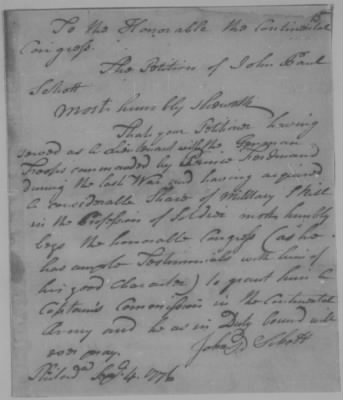 To the Honorable the Continental
Congress.
The Petition of John Paul
Schott
Most humbly Sheweth
That your Petitioner having
served as a Lieutenant with the German
Troops commanded by Prince Ferdinand
during the last War and having acquired
a considerable Share of Military Skill
in the Profession of Soldier most humbly
begs the honorable Congress (as he
has ample Testimonials with him of
his good Character) to grant him a
Captain's Commission in the Continental
Army and he as in Duty bound will
ever pray.
John P. Schott
Philada. Sepr. 4. 1776